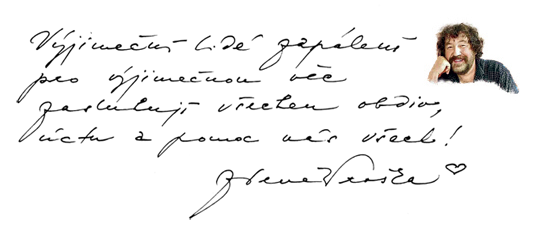 Výjimeční lidé zapálení
pro výjimečnou věc
zasluhují všechen obdiv,
úctu a pomoc nás všech!
Zdeněk Troška